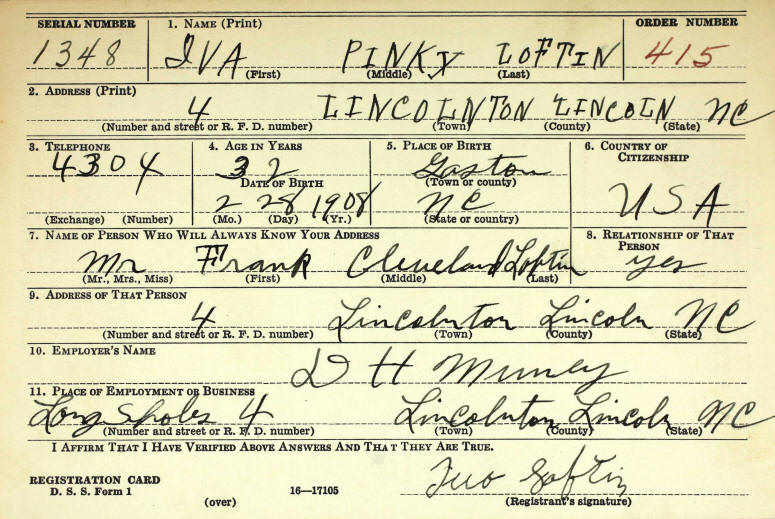 SERIAL NUMBER 1. NAME (Print) ORDER NUMBER
1348 IVA PINKY LOFTIN 415
(First) (Middle) (Last)
2. ADDRESS (Print)
4 LINCOLNTON LINCOLN NC
(Number and street or R. F. D. number) (Town) (County) (State)
3. TELEPHONE 4. AGE IN YEARS 5. PLACE OF BIRTH 6. COUNTRY OF
CITIZENSHIP
4304 32 Gaston
DATE OF BIRTH (Town or county)
2 28 1908 NC USA
(Exchange) (Number) (Mo.) (Day) (Yr.) (State or country)
7. NAME OF PERSON WHO WILL ALWAYS KNOW YOUR ADDRESS 8. RELATIONSHIP OF THAT
PERSON
Mr Frank Cleveland Loftin yes
(Mr., Mrs., Miss) (First) (Middle) (Last)
9. ADDRESS OF THAT PERSON
4 Lincolnton Lincoln NC
(Number and street or R. F. D. number) (Town) (County) (State)
10. EMPLOYER'S NAME
D H
11. PLACE OF EMPLOYMENT OR BUSINESS
Long Sholes 4 Lincolnton Lincoln NC
(Number and street or R. F. D. number) (Town) (County) (State)
I AFFIRM THAT I HAVE VERIFIED ABOVE ANSWERS AND THAT THEY ARE TRUE.
REGISTRATION CARD
D. S. S. Form 1 (over) 16—17105
Loftin
(Registrant's signature)